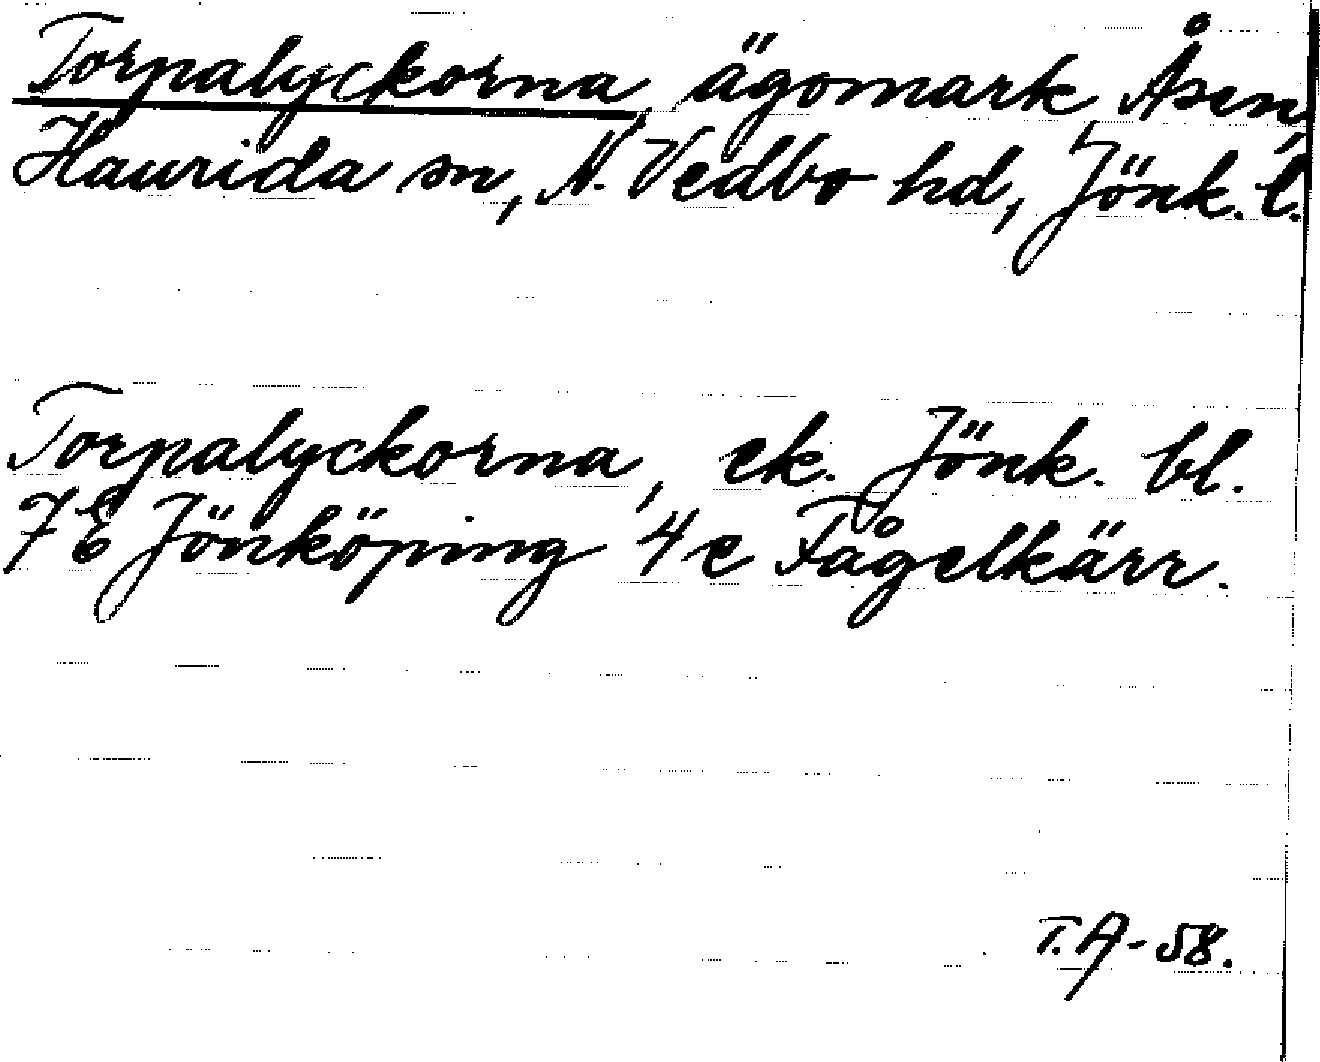 Torpalyckorna, ägomark, Åsen,
Haurida sn, N. Vedbo hd, Jönk. l.
Torpalyckorna, ek. Jönk. bl.
7 E Jönköping 4 e Fågelkärr.
T. A-58.